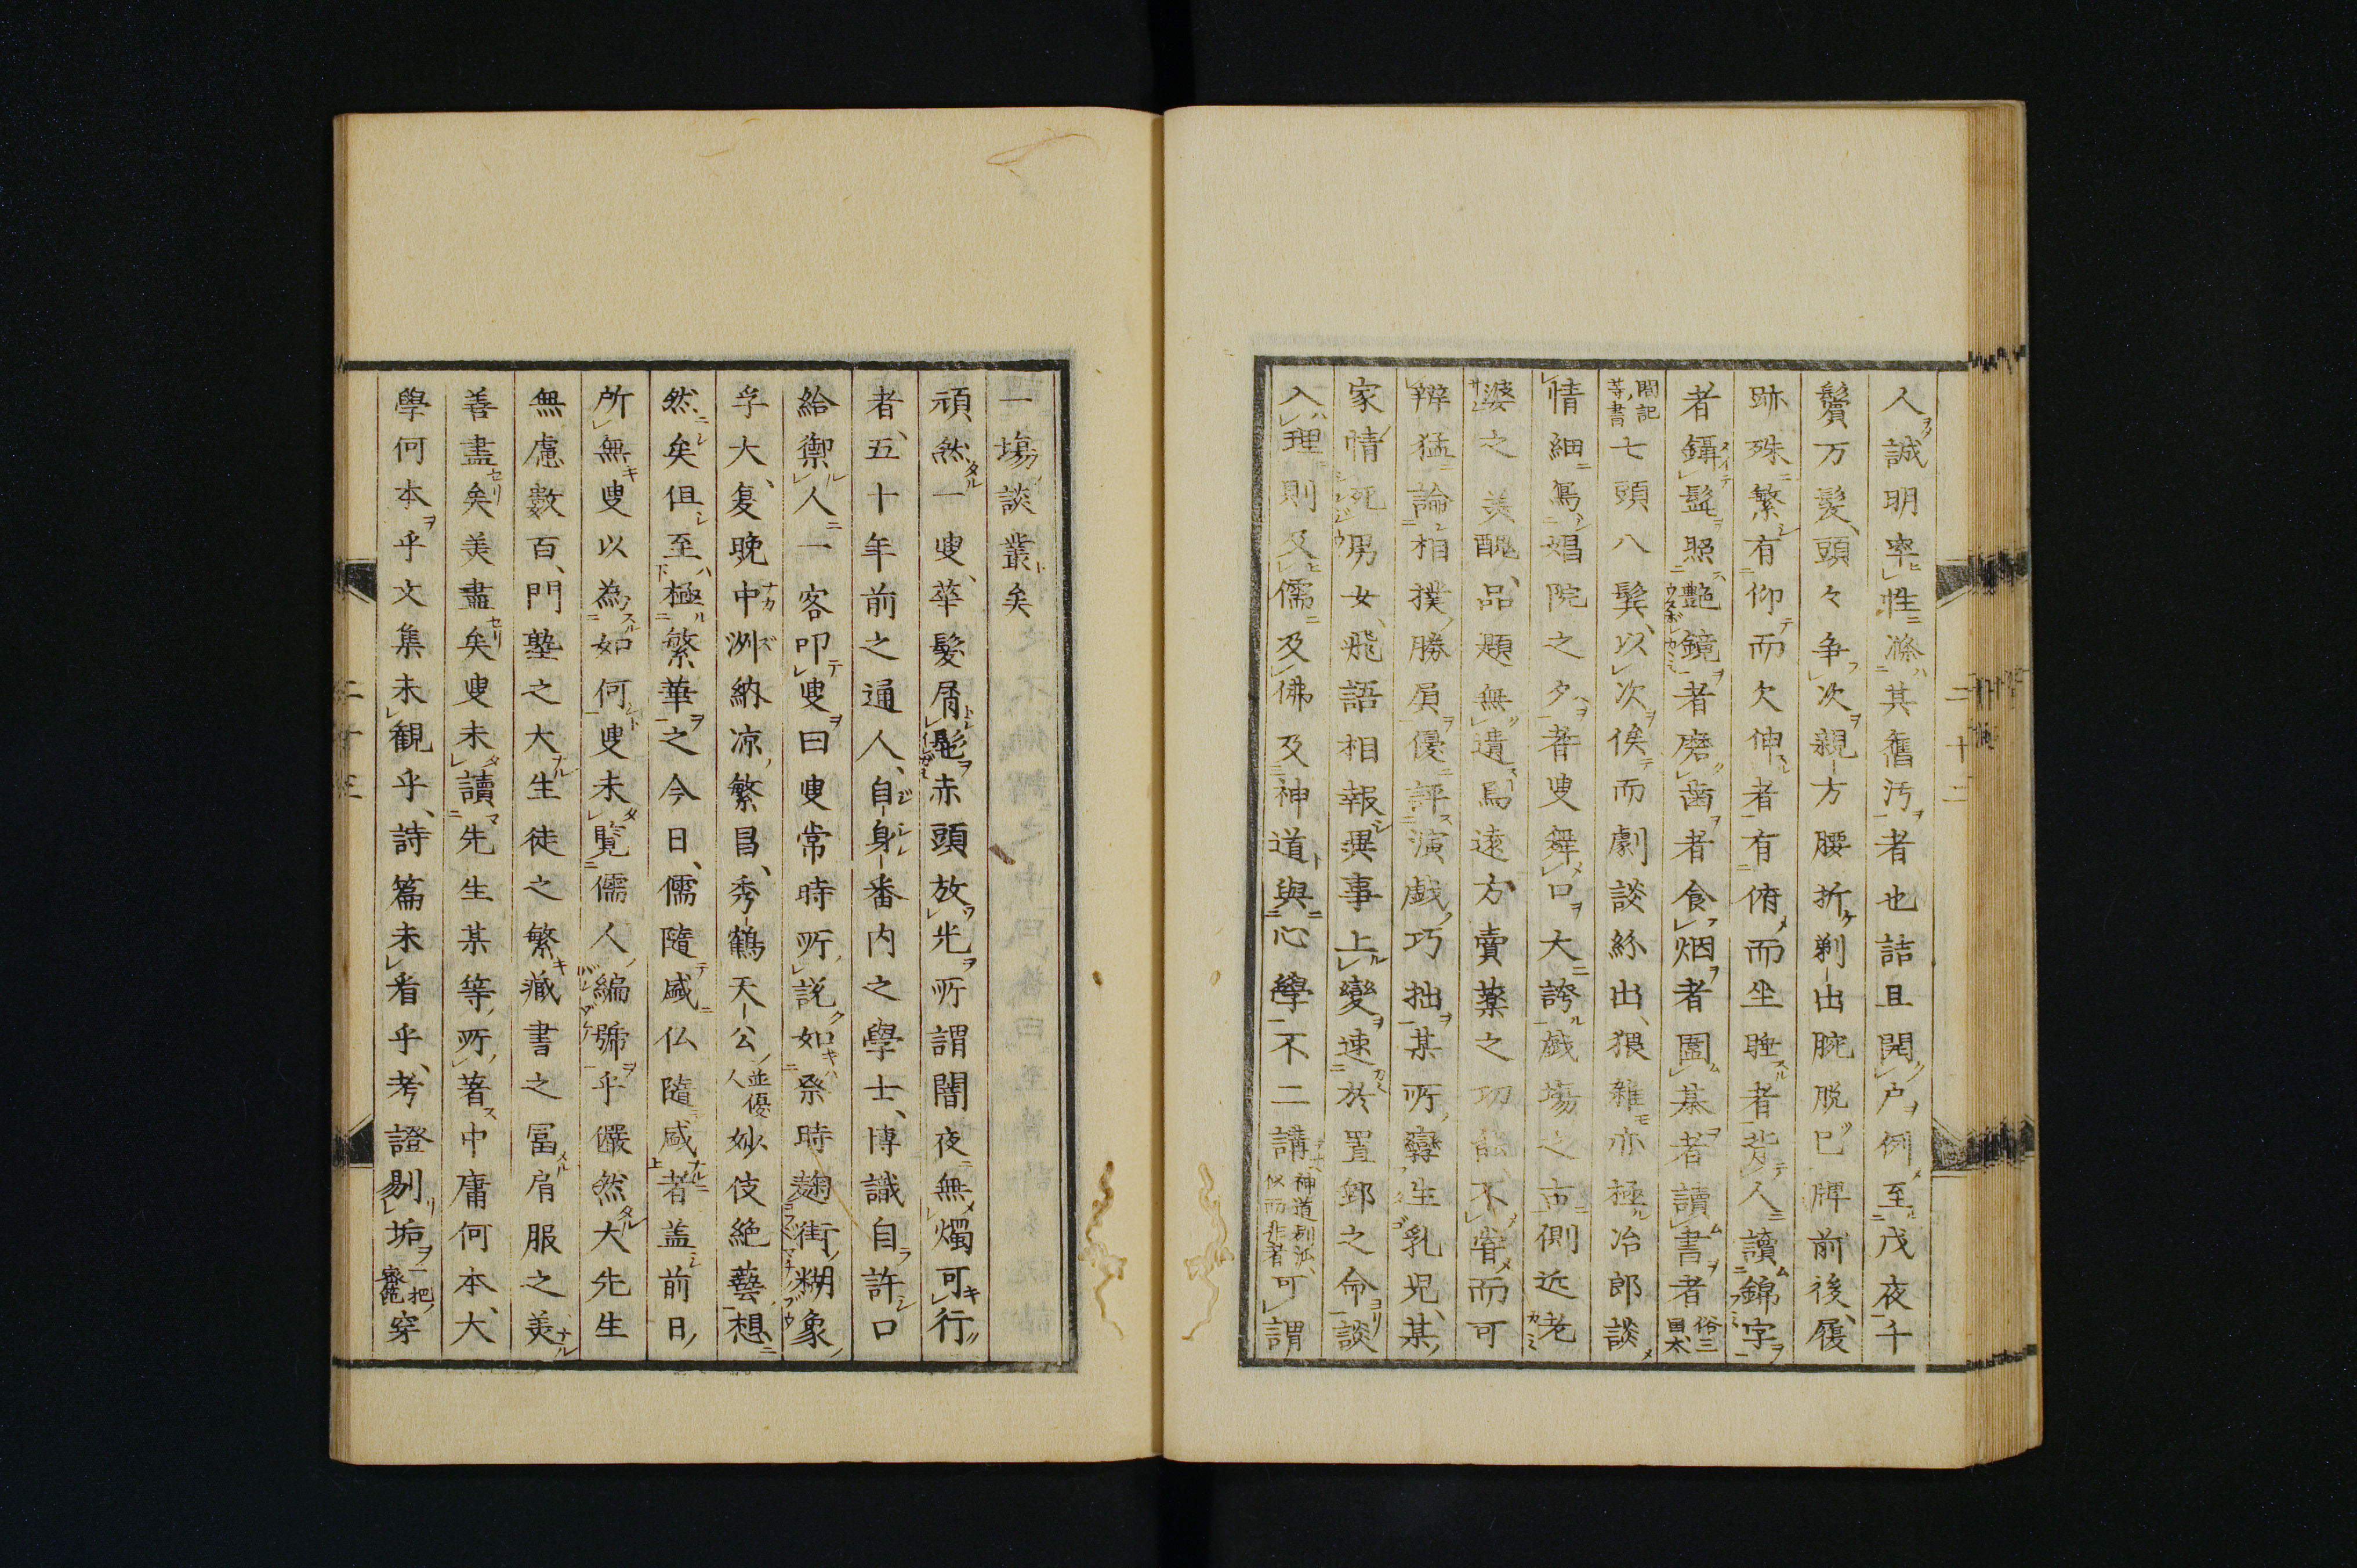 人誠明率性滌其舊汚者也詰且開戸例至戊夜千
鬢万髪頭々争次親方腰折剃出腕脱巳牌前後履
跡殊繁有仰而欠伸者有俯而坐睡者背人讀錦字
者鑷髭照艶鏡者磨齒者食烟者圍棊者讀書者俗三国太
閤記等書七頭八髪以次俟而劇談紛出猥雜亦極冶郎談
情細寫娼院之夕耆叟舞口大誇戯場之古側近老
婆之美醜品題無遺焉遠方賣藥之功能不省而可
辨猛論相撲勝屓優評演戯巧拙某所孿生乳児某
家情死男女飛語相報異事上變速於置郵之命談
入理則及儒及佛及神道與心學不二講神道別派似而非者可謂
一場談叢矣
頑然一叟華髪屑髢赤頭放光所謂闇夜無燭可行
者五十年前之通人自身番内之學士博識自許口
給禦人一客叩叟曰叟常時所説如祭時麹街糊象
孚大复晩中洲納凉繁昌秀鶴天公並優人妙伎絶藝想
然矣但至極繁華之今日儒隨盛仏隨盛者盖前日
所無叟以為如何叟未覧儒人編號乎儼然大先生
無慮數百門塾之大生徒之繁藏書之冨肩服之美
善盡矣美盡矣叟未讀先生某等所著中庸何本大
學何本乎文集未観乎詩篇未看乎考證剔垢一把穿
二十二